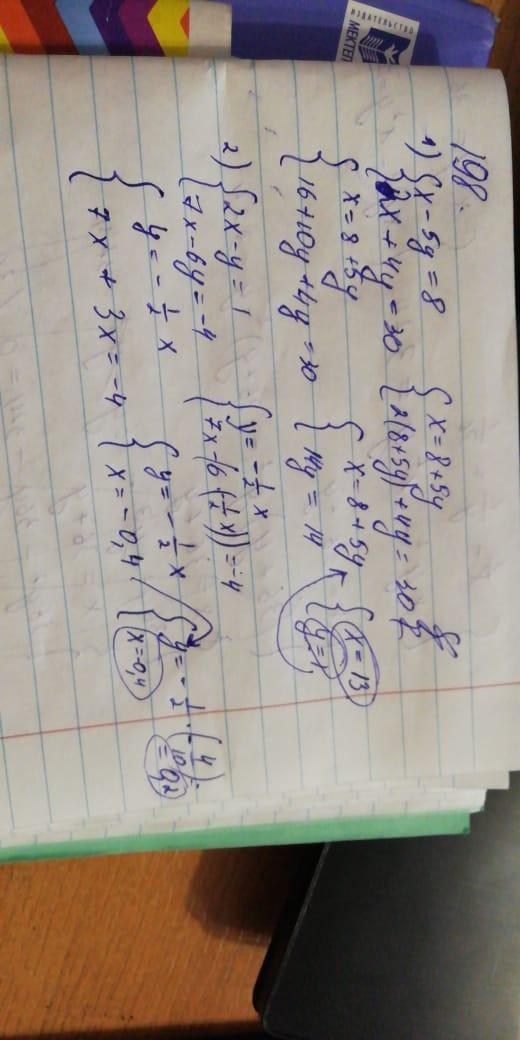 ИЗДАТЕЛЬСТВО
МЕКТЕП
198.
1) { x - 5y = 8
{ 2x + 4y = 30
{ x = 8 + 5y
{ 2(8 + 5y) + 4y = 30
{ x = 8 + 5y
{ 16 + 10y + 4y = 30
{ x = 8 + 5y
{ 14y = 14
{ x = 13
{ y = 1
2) { 2x - y = 1
{ 7x - 6y = -4
{ y = - 1/2 x
{ 7x - 6 (- 1/2 x)) = -4
{ y = - 1/2 x
{ 7x + 3x = -4
{ y = - 1/2 x
{ x = -0,4
{ y = - 1/2 · (- 4/10) = 0,2
{ x = -0,4